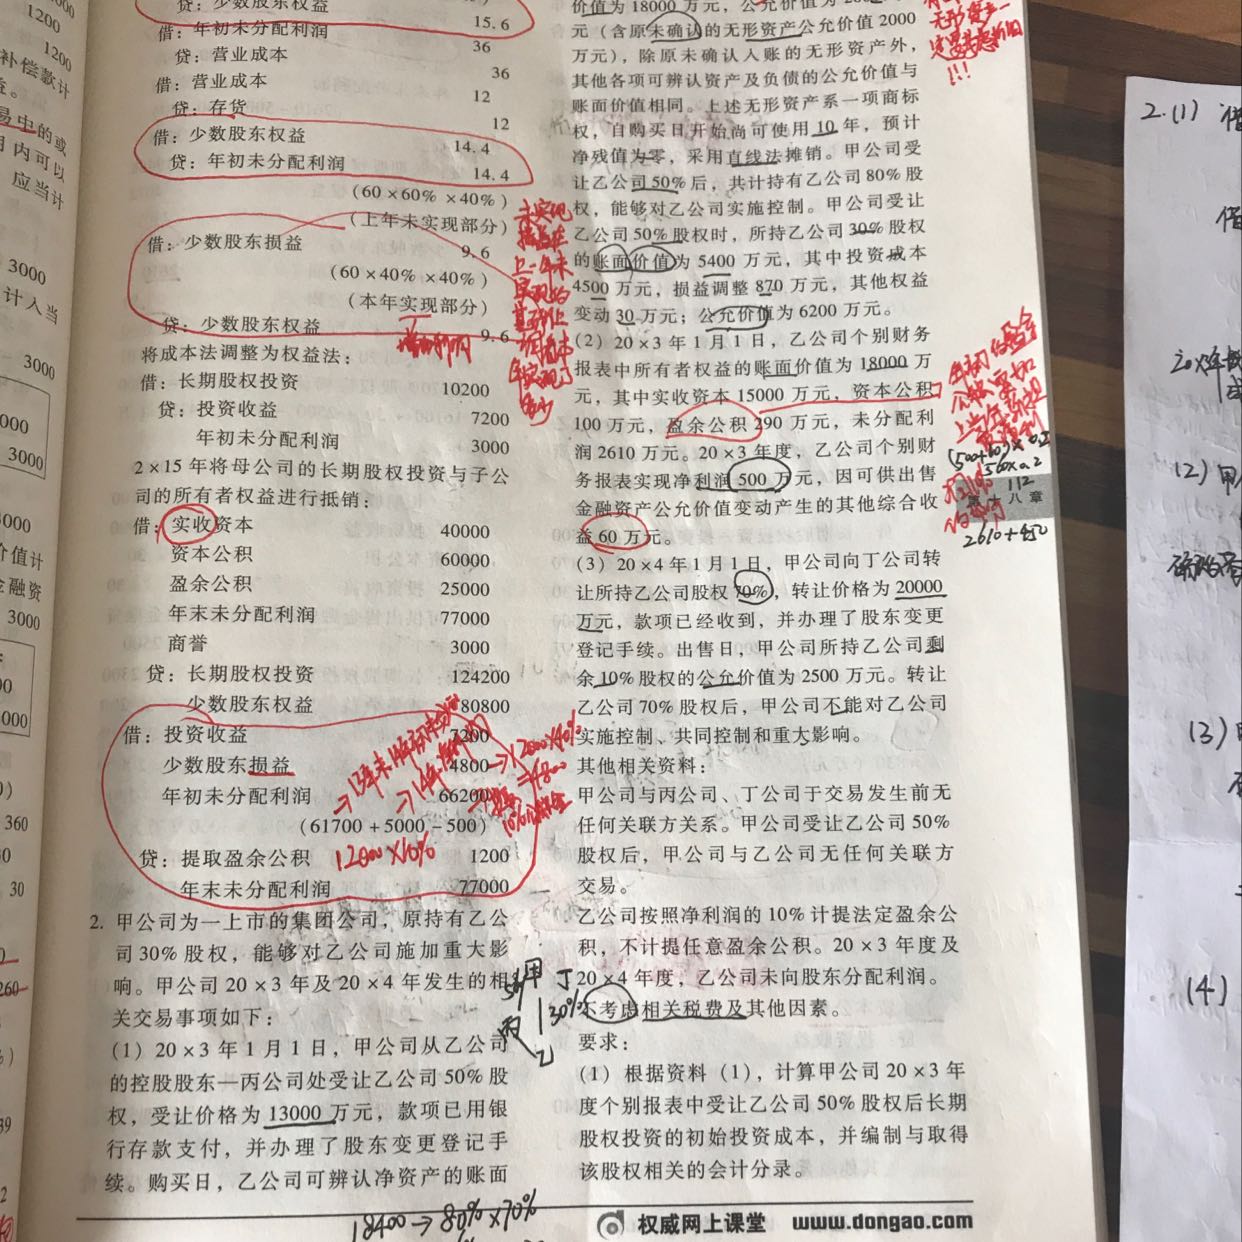 1200
1200
补偿款计
益。
易中的或
月内可以
应当计
3000
计入当
3000
000
3000
5000
价值计
金融资
3000
00
000
360
30
30
260
39
贷：少数股东权益
15.6
借：年初未分配利润
36
贷：营业成本
36
借：营业成本
12
贷：存货
12
借：少数股东权益
14.4
贷：年初未分配利润
14.4
（60×60%×40%）
（上年未实现部分）
借：少数股东损益
9.6
（60×40%×40%）
（本年实现部分）
贷：少数股东权益
9.6
将成本法调整为权益法：
借：长期股权投资 10200
贷：投资收益 7200
年初未分配利润 3000
2×15年将母公司的长期股权投资与子公
司的所有者权益进行抵销：
借：实收资本 40000
资本公积 60000
盈余公积 25000
年末未分配利润 77000
商誉 3000
贷：长期股权投资 124200
少数股东权益 80800
借：投资收益 7200
少数股东损益 4800→12000×40%
=4800
年初未分配利润 66200
（61700+5000-500）
贷：提取盈余公积 12000×10% 1200
年末未分配利润 77000
2. 甲公司为一上市的集团公司，原持有乙公
司30%股权，能够对乙公司施加重大影
响。甲公司20×3年及20×4年发生的相
关交易事项如下：
（1）20×3年1月1日，甲公司从乙公司
的控股股东—丙公司处受让乙公司50%股
权，受让价格为13000万元，款项已用银
行存款支付，并办理了股东变更登记手
续。购买日，乙公司可辨认净资产的账面
甲 丁
30%
丙
乙
18400→80%×70%
价值为18000万元，公允价值为
元（含原未确认的无形资产公允价值2000
万元），除原未确认入账的无形资产外，
其他各项可辨认资产及负债的公允价值与
账面价值相同。上述无形资产系一项商标
权，自购买日开始尚可使用10年，预计
净残值为零，采用直线法摊销。甲公司受
让乙公司50%后，共计持有乙公司80%股
权，能够对乙公司实施控制。甲公司受让
乙公司50%股权时，所持乙公司30%股权
的账面价值为5400万元，其中投资成本
4500万元，损益调整870万元，其他权益
变动30万元；公允价值为6200万元。
（2）20×3年1月1日，乙公司个别财务
报表中所有者权益的账面价值为18000万
元，其中实收资本15000万元，资本公积
100万元，盈余公积290万元，未分配利
润2610万元。20×3年度，乙公司个别财
务报表实现净利润500万元，因可供出售
金融资产公允价值变动产生的其他综合收
益60万元。
（3）20×4年1月1日，甲公司向丁公司转
让所持乙公司股权70%，转让价格为20000
万元，款项已经收到，并办理了股东变更
登记手续。出售日，甲公司所持乙公司剩
余10%股权的公允价值为2500万元。转让
乙公司70%股权后，甲公司不能对乙公司
实施控制、共同控制和重大影响。
其他相关资料：
甲公司与丙公司、丁公司于交易发生前无
任何关联方关系。甲公司受让乙公司50%
股权后，甲公司与乙公司无任何关联方
交易。
乙公司按照净利润的10%计提法定盈余公
积，不计提任意盈余公积。20×3年度及
20×4年度，乙公司未向股东分配利润。
不考虑相关税费及其他因素。
要求：
（1）根据资料（1），计算甲公司20×3年
度个别报表中受让乙公司50%股权后长期
股权投资的初始投资成本，并编制与取得
该股权相关的会计分录。
权威网上课堂 www.dongao.com
(500+60)×0.2
560×0.2
112
第十八章
2610+450
2.(1) 借
(2) 甲
(3)
(4)